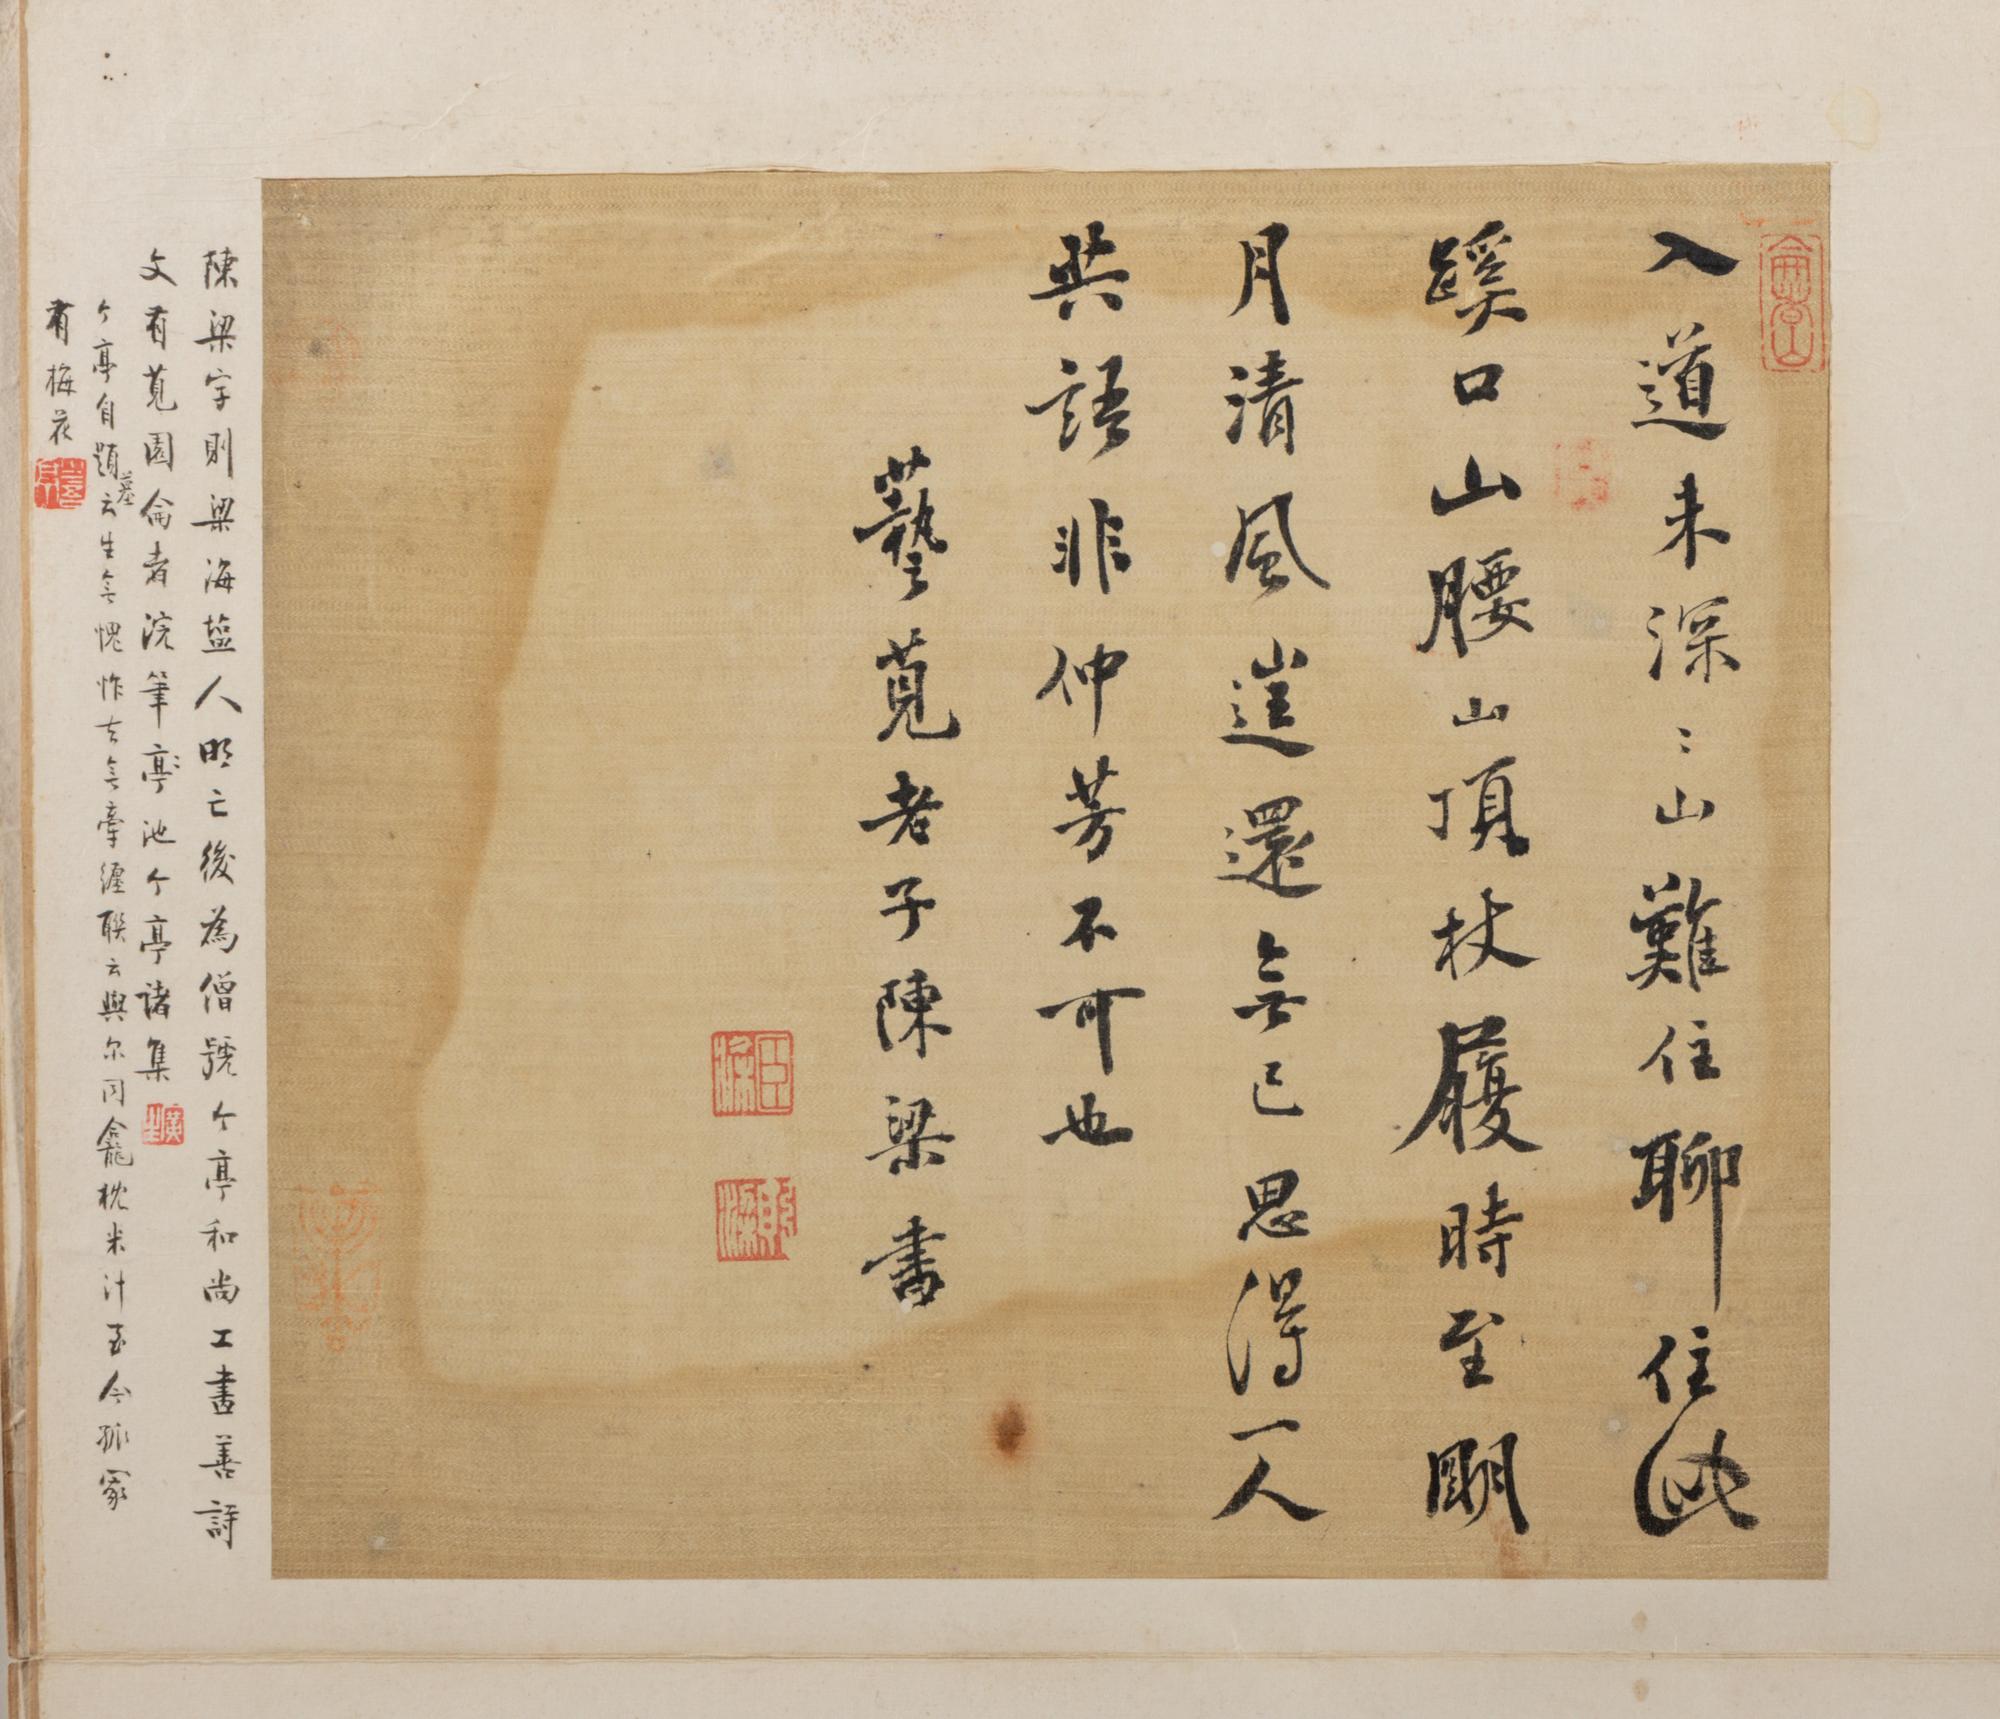 入道未深深山難住聊住此
蹊口山腰山頂杖履時至朙
月清風崔還無已思得一人
共語非仲芳不可也
藝莧老子陳梁書
陳梁字則梁海盐人明亡後為僧號个亭和尚工書善詩
文有莧園侖者浣筆亭池个亭諸集
个亭自題墓云生無愧怍去無牽纏聯云與尔同龕枕米汁至今孤冢
有梅花